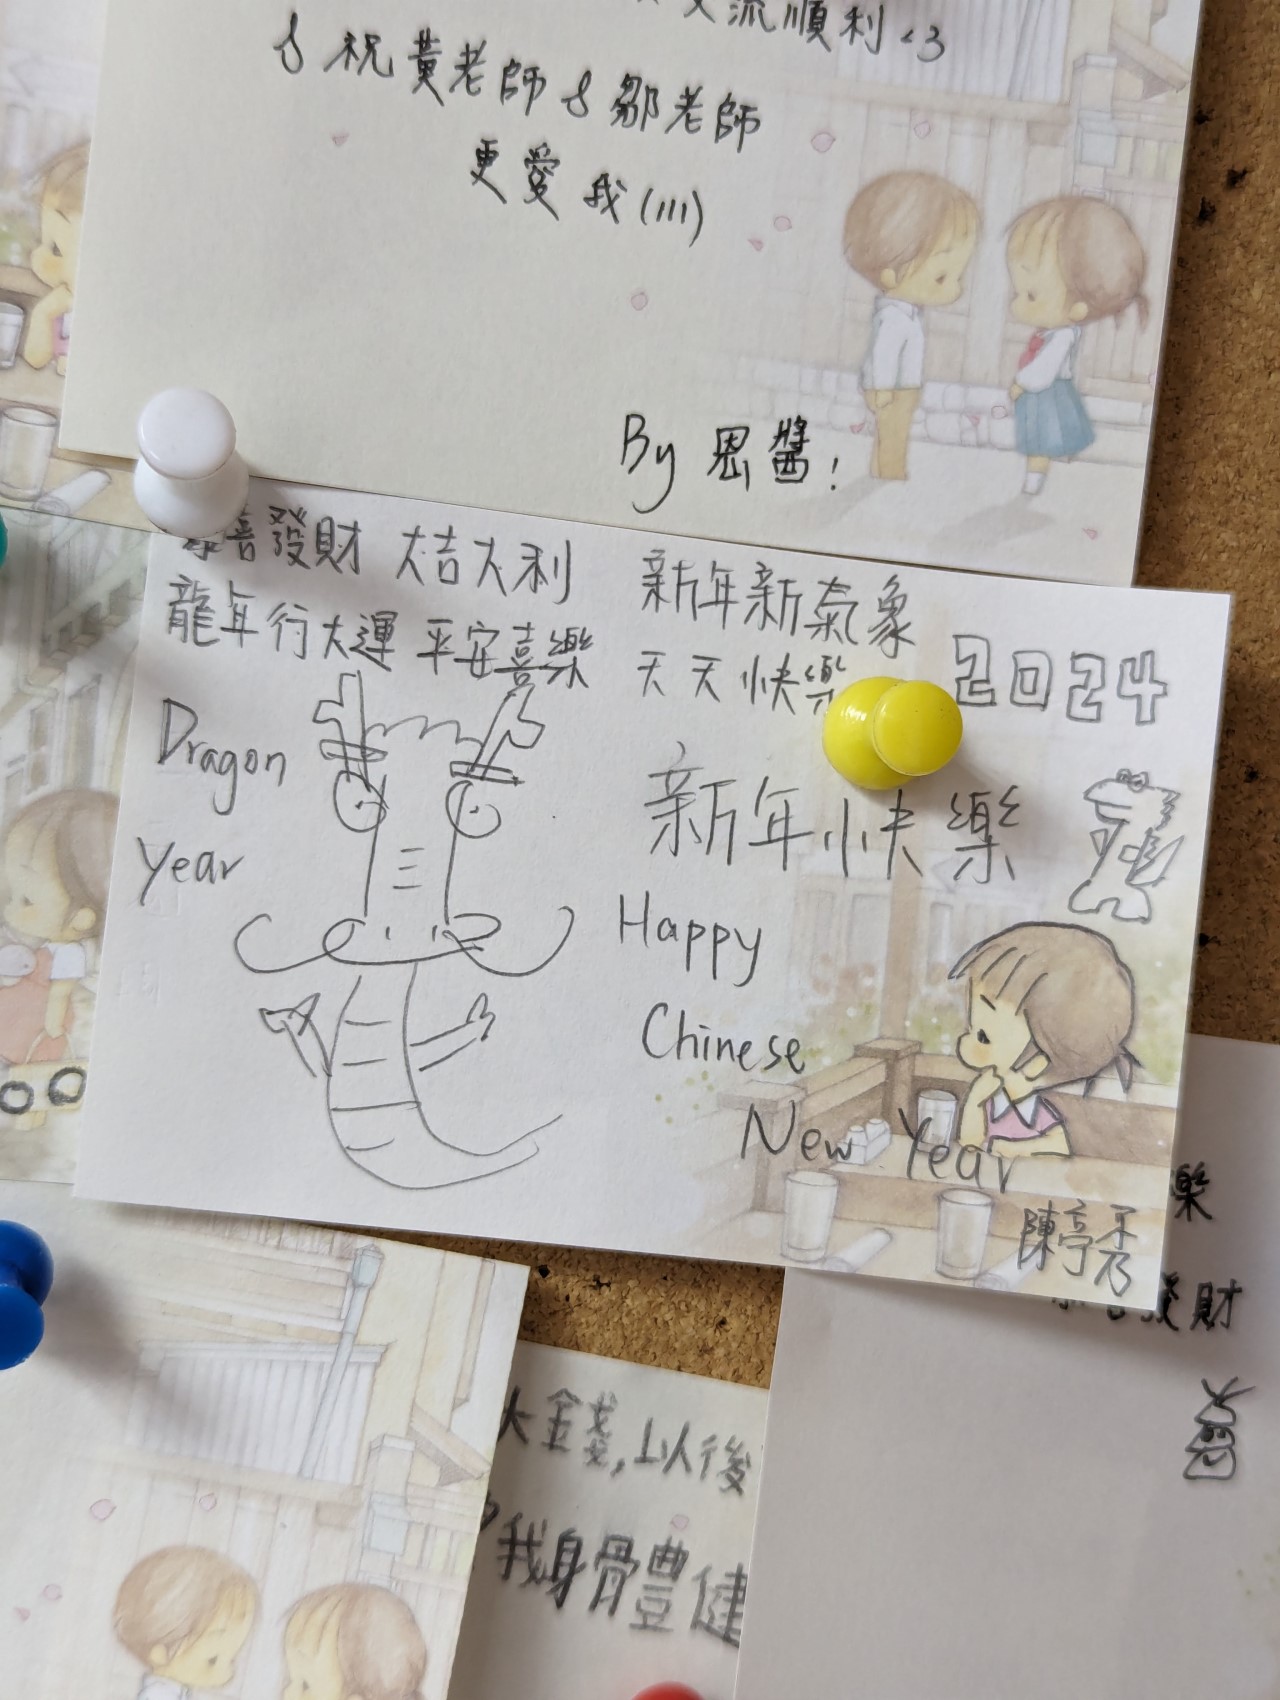 流順利 <3
& 祝黃老師 & 鄒老師
更愛我(111)
By 恩醬!
喜發財 大吉大利
龍年行大運 平安喜樂
新年新氣象
天天快樂
2024
Dragon
Year
新年快樂
Happy
Chinese
New Year
陳亭秀
樂
發財
大金錢,以後
我身體健